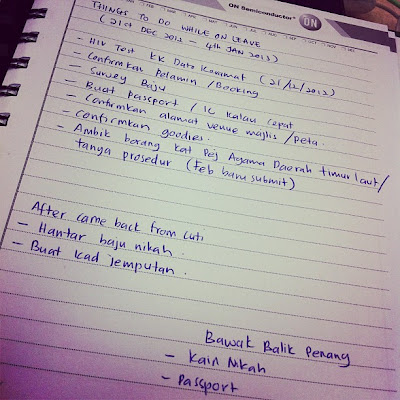 ON Semiconductor
ON
THINGS TO DO WHILE ON LEAVE
(21st DEC 2012 - 4th JAN 2013)
- HIV Test KK Dato Keramat (21/12/2012)
- Confirmkan Pelamin / Booking
- Survey Baju
- Buat Passport / IC kalau cepat
- Confirmkan alamat venue majlis / peta.
- confirmkan goodies.
- Ambik borang kat Pej Agama Daerah timur laut /
tanya prosedur (Feb baru submit)
After came back from cuti
- Hantar baju nikah.
- Buat kad Jemputan.
Bawak Balik Penang
- Kain Nikah
- Passport